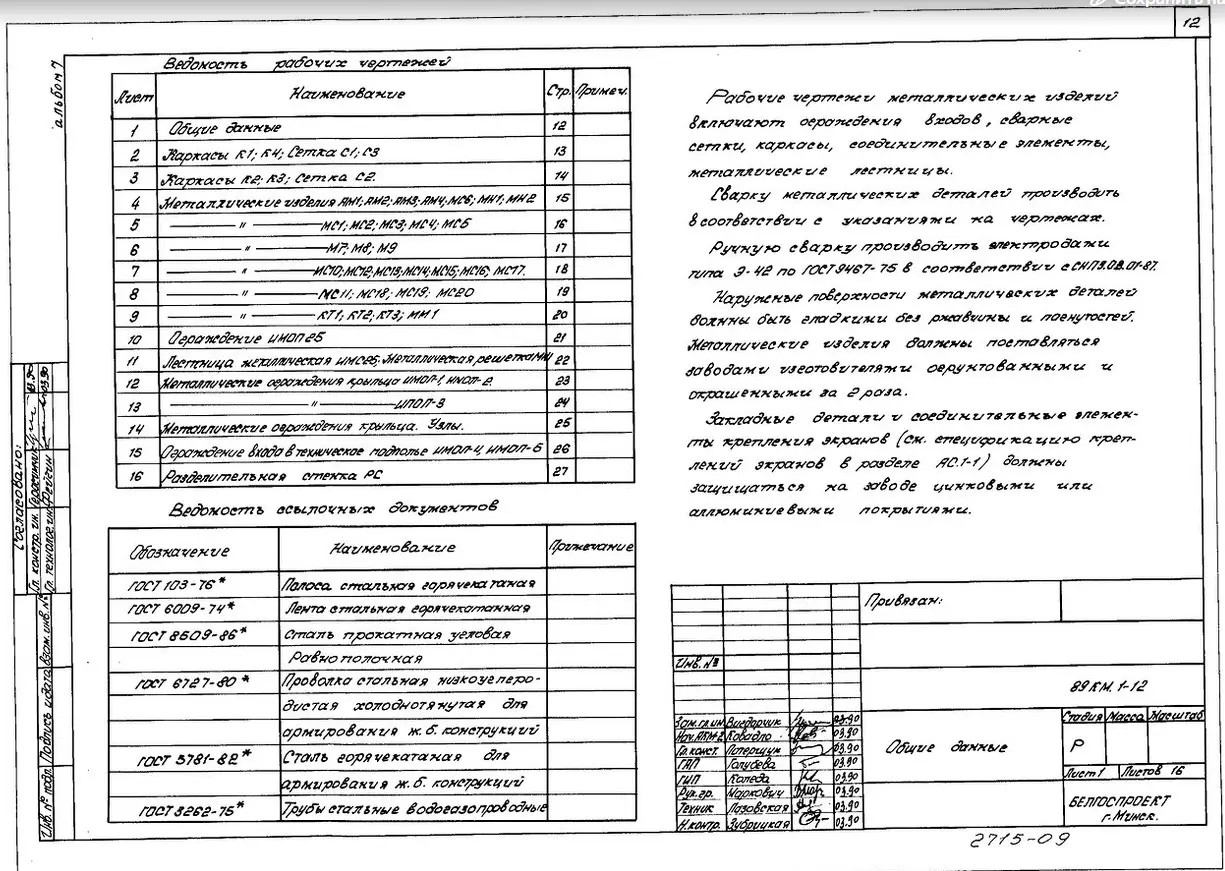 Сохранить на
12
Альбом 7
Ведомость рабочих чертежей
Лист Наименование Стр. Примеч.
1 Общие данные 12
2 Каркасы К1; К4; Сетка С1; С3 13
3 Каркасы К2; К3; Сетка С2. 14
4 Металлические изделия АМ1; АМ2; АМ3; АМ4; МС6; МН1; МН2 15
5 —— " —— МС1; МС2; МС3; МС4; МС5 16
6 —— " —— М7; М8; М9 17
7 —— " —— МС10; МС12; МС13; МС14; МС15; МС16; МС17. 18
8 —— " —— МС11; МС18; МС19; МС20 19
9 —— " —— КТ1; КТ2; КТ3; ММ1 20
10 Ограждение ИМОП25 21
11 Лестница металлическая ИМС25; Металлическая решетка 22
12 Металлические ограждения крыльца ИМОП-1, ИМОП-2. 23
13 —— " —— ИМОП-3 24
14 Металлические ограждения крыльца. Узлы. 25
15 Ограждение входа в техническое подполье ИМОП-4, ИМОП-5 26
16 Разделительная стенка РС 27
Ведомость ссылочных документов
Обозначение Наименование Примечание
ГОСТ 103-76* Полоса стальная горячекатаная
ГОСТ 6009-74* Лента стальная горячекатанная
ГОСТ 8509-86* Сталь прокатная угловая
Равнополочная
ГОСТ 6727-80* Проволка стальная низкоуглеро-
дистая холоднотянутая для
армирования ж.б. конструкций
ГОСТ 5781-82* Сталь горячекатаная для
армирования ж.б. конструкций
ГОСТ 3262-75* Трубы стальные водогазопроводные
Рабочие чертежи металлических изделий
включают ограждения входов, сварные
сетки, каркасы, соединительные элементы,
металлические лестницы.
Сварку металлических деталей производить
в соответствии с указаниями на чертежах.
Ручную сварку производить электродами
типа Э-42 по ГОСТ 9467-75 в соответствии с СНиП 3.03.01-87.
Наружные поверхности металлических деталей
должны быть гладкими без ржавчины и погнутостей.
Металлические изделия должны поставляться
заводами изготовителями огрунтованными и
окрашенными за 2 раза.
Закладные детали и соединительные элемен-
ты крепления экранов (см. спецификацию креп-
лений экранов в разделе АС.1-1) должны
защищаться на заводе цинковыми или
аллюминиевыми покрытиями.
Согласовано:
Гл. констр. ин. 03.90
Гл. технолог ин. 03.90
Взам. инв. №
Подпись и дата
Инв. № подл.
Инв. №
Привязан:
89КМ.1-12
Зам. гл. ин. 03.90
Нач. АПМ-2 Ковадло 03.90
Гл. конст. Потерщук 03.90
ГАП Голубева 03.90
ГИП Коледа 03.90
Рук. гр. Маркович 03.90
Техник Лазовская 03.90
Н. контр. Зубрицкая 03.90
Общие данные
Стадия Масса Масштаб
Р
Лист 1 Листов 16
БЕЛГОСПРОЕКТ
г. Минск.
2715-09